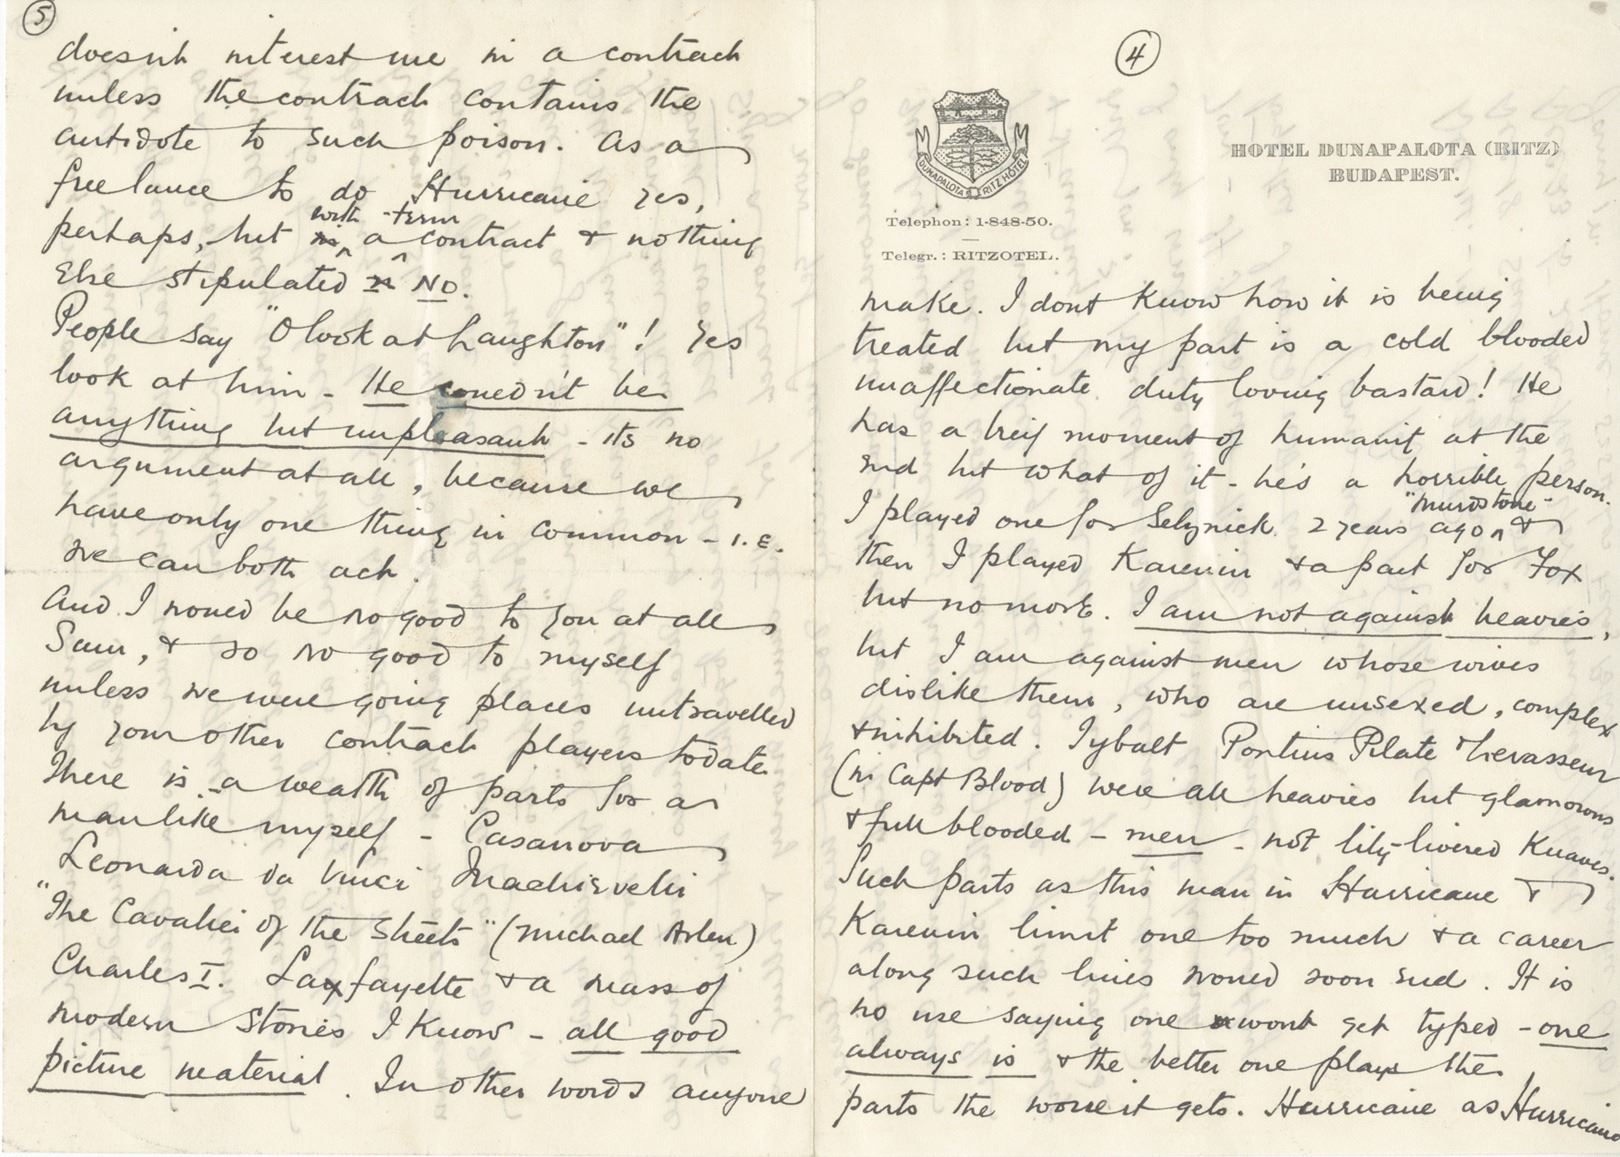 5
doesn't interest me in a contract
unless the contract contains the
antidote to such poison. As a
free lance to do Hurricane yes,
with -term
perhaps, but a contract & nothing
Else stipulated NO.
People say "O look at Laughton"! Yes
look at him - He couldn't be
anything but unpleasant - its no
argument at all, because we
have only one thing in common - I.E.
we can both act.
And I would be no good to you at all
Sam, & so no good to myself
unless we were going places untravelled
by your other contract players todate.
There is a wealth of parts for a
man like myself - Casanova
Leonardo da Vinci Machiavelli
"The Cavalier of the Streets" (Michael Arlen)
Charles I. Lafayette & a mass of
modern stories I know - all good
picture material. In other words anyone
4
DUNAPALOTA RITZ HOTEL
HOTEL DUNAPALOTA (RITZ)
BUDAPEST.
Telephon: 1-848-50.
Telegr.: RITZOTEL.
make. I dont know how it is being
treated but my part is a cold blooded
unaffectionate duty loving bastard! He
has a breif moment of humanity at the
end but what of it - he's a horrible person.
"Murdstone"
I played one for Selznick 2 years ago &
then I played Karenin & a part for Fox
but no more. I am not against heavies,
but I am against men whose wives
dislike them, who are unsexed, complex
& inhibited. Tybalt Pontius Pilate & Levasseur
(in Capt Blood) were all heavies but glamorous
& full blooded - men - not lily-livered Knaves.
Such parts as this man in Hurricane &
Karenin limit one too much & a career
along such lines would soon end. It is
no use saying one wont get typed - one
always is & the better one plays the
parts the worse it gets. Hurricane as Hurricane